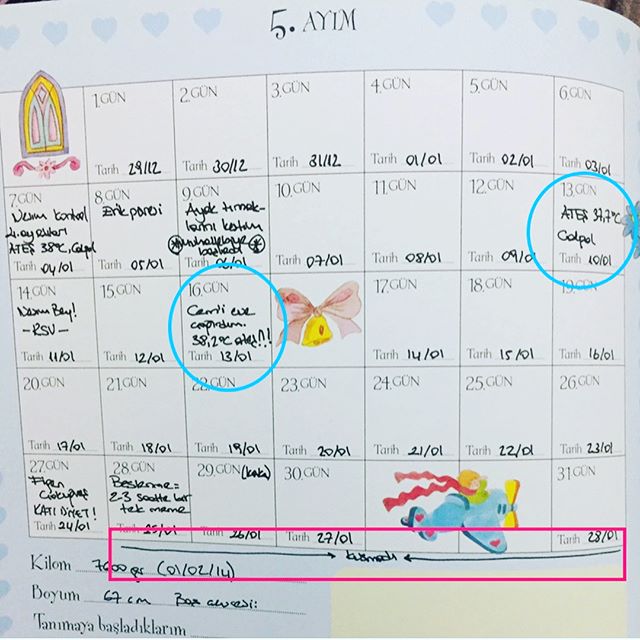 5. AYIM
1.GÜN
Tarih 29/12
2.GÜN
Tarih 30/12
3.GÜN
Tarih 31/12
4.GÜN
Tarih 01/01
5.GÜN
Tarih 02/01
6.GÜN
Tarih 03/01
7.GÜN
kontrol
4.ay aşıları
ATEŞ 38°C, Calpol
Tarih 04/01
8.GÜN
Tarih 05/01
9.GÜN
Ayak tırnak-
larını kestim
Tarih 06/01
10.GÜN
Tarih 07/01
11.GÜN
Tarih 08/01
12.GÜN
Tarih 09/01
13.GÜN
ATEŞ 37,7°C
Calpol
Tarih 10/01
14.GÜN
Bey!
- RSV -
Tarih 11/01
15.GÜN
Tarih 12/01
16.GÜN
eve
38,2°C ateş!!!
Tarih 13/01
17.GÜN
Tarih 14/01
18.GÜN
Tarih 15/01
19.GÜN
Tarih 16/01
20.GÜN
Tarih 17/01
21.GÜN
Tarih 18/01
22.GÜN
Tarih 19/01
23.GÜN
Tarih 20/01
24.GÜN
Tarih 21/01
25.GÜN
Tarih 22/01
26.GÜN
Tarih 23/01
27.GÜN
KATI DİYET!
Tarih 24/01
28.GÜN
Beslenme=
2-3 saatte bir
tek meme
Tarih 25/01
29.GÜN (kaka)
Tarih 26/01
30.GÜN
Tarih 27/01
31.GÜN
Tarih 28/01
kusmadı
Kilom 7600 gr (01/02/14)
Boyum 67 cm Baş çevresi:
Tanımaya başladıklarım